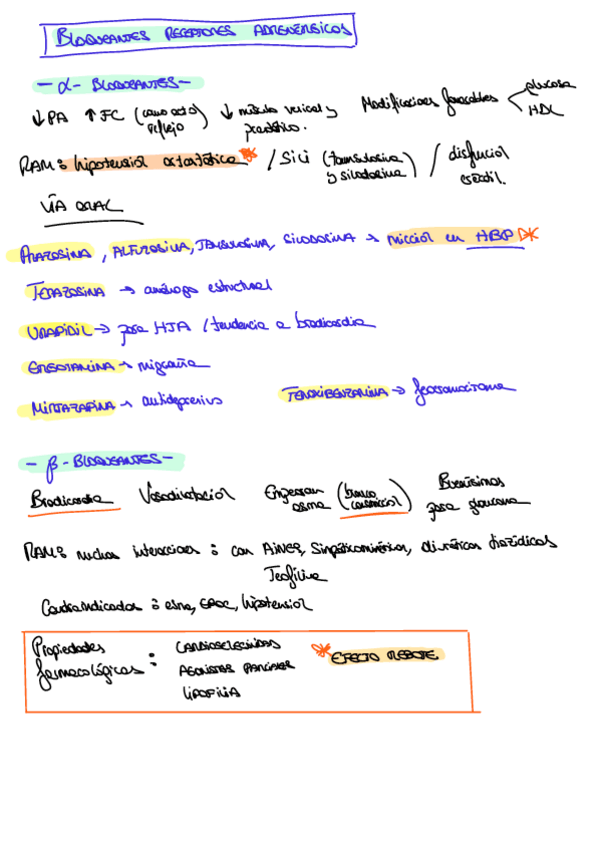 BLOQUEANTES RECEPTORES ADRENÉRGICOS
- α - BLOQUEANTES -
↓ PA ↑ FC (como acto reflejo) ↓ músculo vesical y prostático. Modificaciones favorables < glucosa HDL
RAM: hipotensión ortostática * / SICI (tamsulosina y silodosina) / disfunción eréctil.
VÍA ORAL
PRAZOSINA, ALFUZOSINA, TAMSULOSINA, SILODOSINA → micción en HBP *
TERAZOSINA → análogo estructural
URAPIDIL → para HTA / tendencia a bradicardia
ERGOTAMINA → migraña
MIRTAZAPINA → antidepresivo FENOXIBENZAMINA → feocromocitoma
- β - BLOQUEANTES -
Bradicardia Vasodilatación Empeoran asma (bronco constricción) Buenísimos para glaucoma
RAM: muchas interacciones: con AINES, Simpáticomiméticos, diuréticos tiazídicos
Teofilina
Contraindicados: asma, EPOC, hipotensión
Propiedades farmacológicas: CARDIOSELECTIVIDAD * EFECTO REBOTE
AGONISTAS PARCIALES
LIPOFILIA